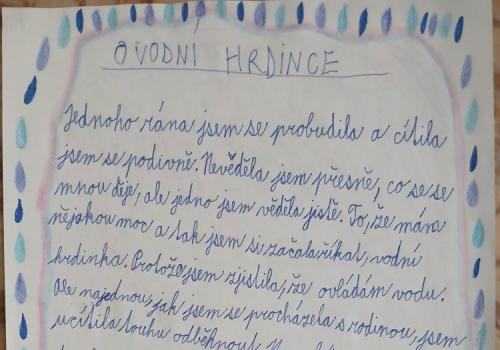 O VODNÍ HRDINCE
Jednoho rána jsem se probudila a cítila
jsem se podivně. Nevěděla jsem přesně, co se se
mnou děje, ale jedno jsem věděla jistě. To, že mám
nějakou moc a tak jsem si začala říkat, vodní
hrdinka. Protože jsem zjistila, že ovládám vodu.
Ale najednou, jak jsem se procházela s rodinou, jsem
ucítila touhu odběhnout.